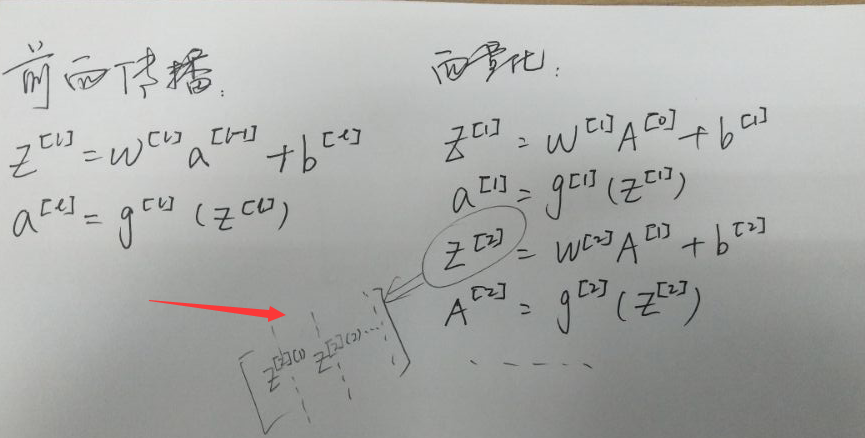 前向传播:
z^[l] = w^[l] a^[l-1] + b^[l]
a^[l] = g^[l] (z^[l])
向量化:
Z^[1] = W^[1] A^[0] + b^[1]
a^[1] = g^[1] (Z^[1])
Z^[2] = W^[2] A^[1] + b^[2]
A^[2] = g^[2] (Z^[2])
.....
[ Z^[2](1) Z^[2](2) ... ]